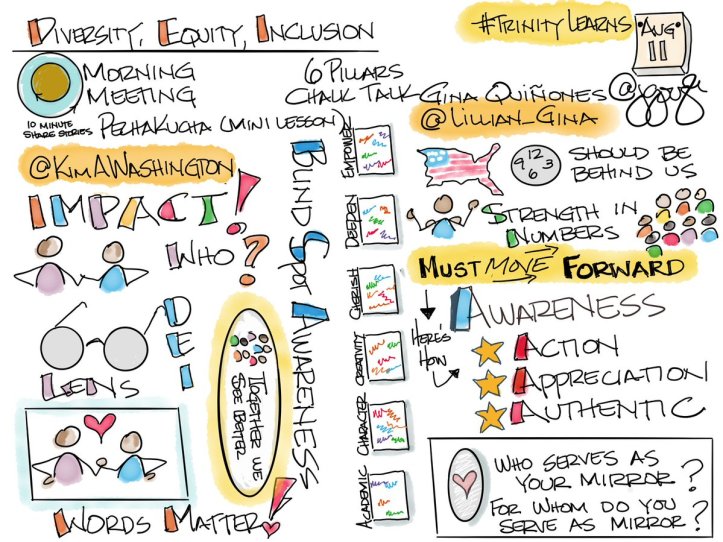 DIVERSITY, EQUITY, INCLUSION
#TRINITYLEARNS
AUG
11
MORNING
MEETING
10 MINUTE
SHARE STORIES
PECHAKUCHA (MINI LESSON)
6 PILLARS
CHALK TALK
GINA QUIÑONES
@LILLIAN_GINA
@jgough
@KIMAWASHINGTON
IMPACT!
WHO?
DEI
LENS
TOGETHER WE
SEE BETTER
WORDS MATTER!
BLIND SPOT AWARENESS
EMPOWER
DEEPEN
CHERISH
CREATIVITY
CHARACTER
ACADEMIC
9 12 3 6
SHOULD BE
BEHIND US
STRENGTH IN
NUMBERS
MUST MOVE FORWARD
HERE'S
HOW
AWARENESS
ACTION
APPRECIATION
AUTHENTIC
WHO SERVES AS
YOUR MIRROR?
FOR WHOM DO YOU
SERVE AS MIRROR?